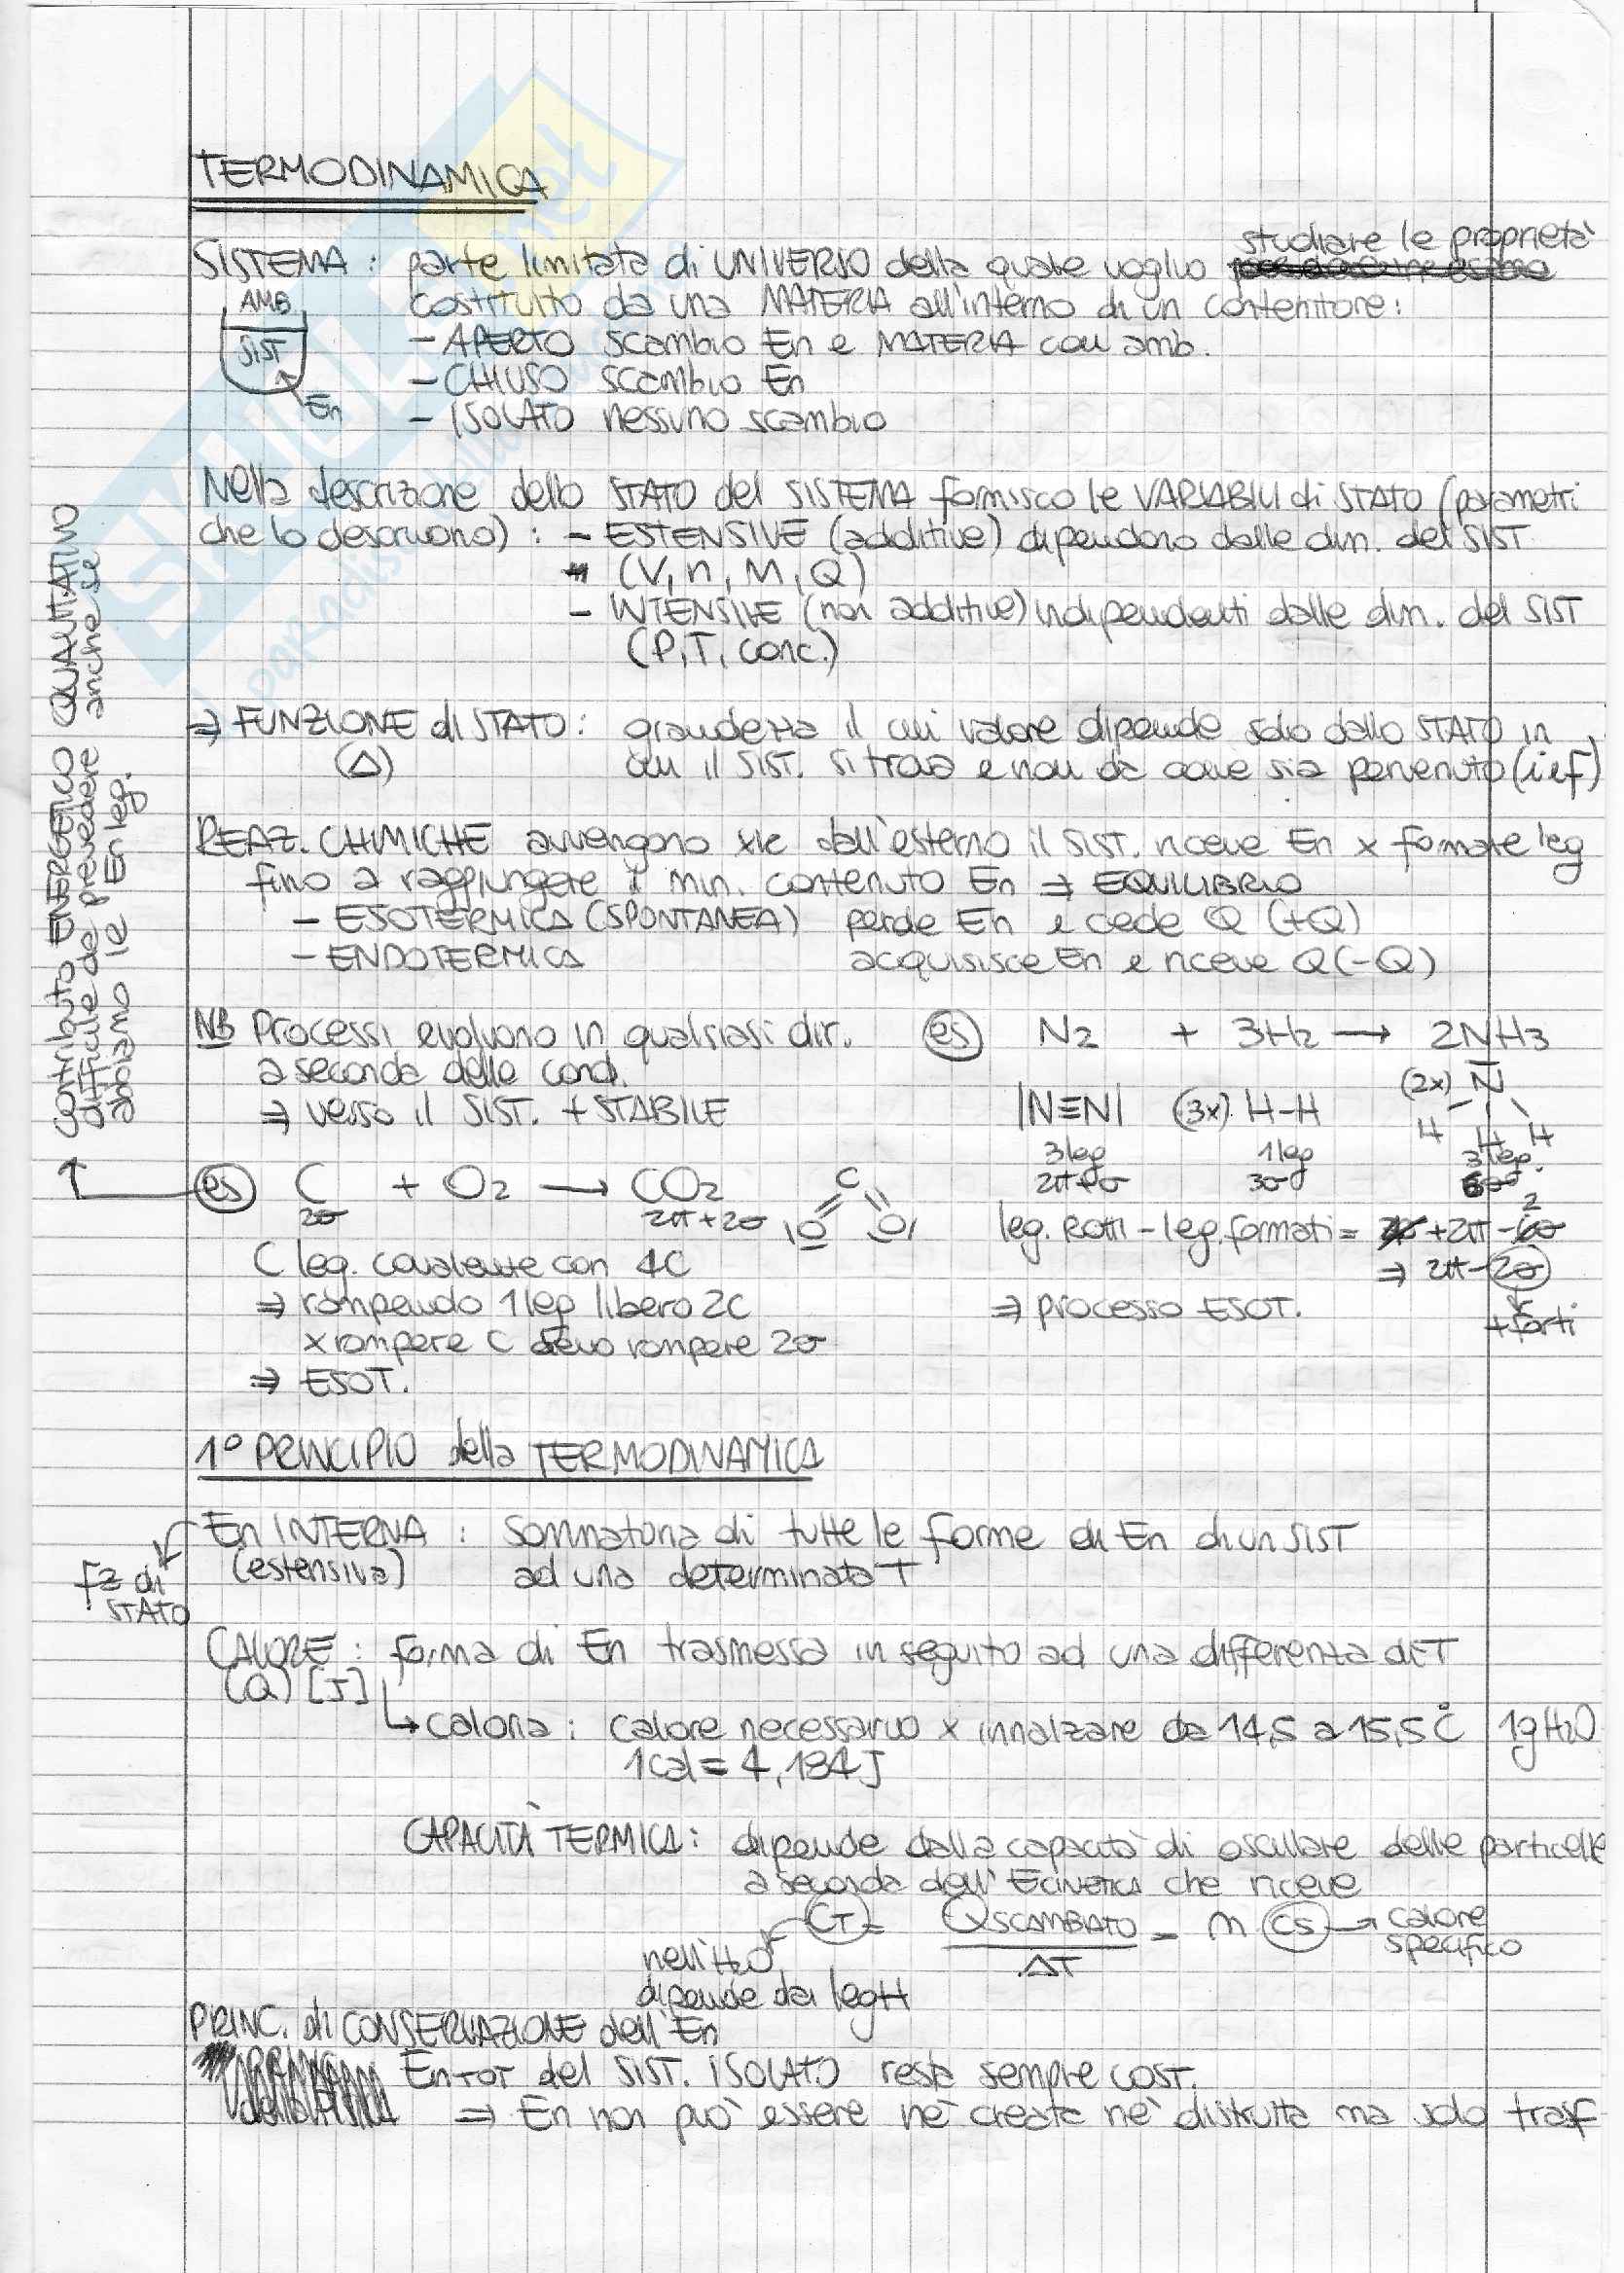 TERMODINAMICA
studiare le proprietà
SISTEMA : parte limitata di UNIVERSO della quale voglio
costituito da una MATERIA all'interno di un contenitore:
AMB
SIST
En
- APERTO scambio En e MATERIA con amb.
- CHIUSO scambio En
- ISOLATO nessuno scambio
Nella descrizione dello STATO del SISTEMA fornisco le VARIABILI di STATO (parametri
che lo descrivono) : - ESTENSIVE (additive) dipendono dalle dim. del SIST
(V, n, M, Q)
- INTENSIVE (non additive) indipendenti dalle dim. del SIST
(P, T, conc.)
⇒ FUNZIONE di STATO : grandezza il cui valore dipende solo dallo STATO in
(Δ) cui il SIST. si trova e non da come sia pervenuto (i e f)
REAZ. CHIMICHE avvengono xk dall'esterno il SIST. riceve En x formare leg
fino a raggiungere il min. contenuto En ⇒ EQUILIBRIO
- ESOTERMICA (SPONTANEA) perde En e cede Q (+Q)
- ENDOTERMICA acquisisce En e riceve Q (-Q)
contributo ENERGETICO QUALITATIVO
difficile da prevedere anche se
abbiamo le En leg.
NB Processi evolvono in qualsiasi dir.
a seconda delle cond.
⇒ verso il SIST. + STABILE
es N2 + 3H2 → 2NH3
|N≡N| (3x) H-H (2x) N
H H H
3 leg 1 leg 3 leg.
2π+σ 3σ
leg. Rotti - leg. formati = +2π - 2
⇒ 2π - 2σ
+ forti
⇒ processo ESOT.
es C + O2 → CO2
2σ 2π + 2σ
C
|O O|
C leg. covalente con 4C
⇒ rompendo 1 leg libero 2C
x rompere C devo rompere 2σ
⇒ ESOT.
1° PRINCIPIO della TERMODINAMICA
En INTERNA : sommatoria di tutte le forme di En di un SIST
(estensiva) ad una determinata T
fz di
STATO
CALORE : forma di En trasmessa in seguito ad una differenza di T
(Q) [J]
↳ caloria : calore necessario x innalzare da 14,5 a 15,5 °C 1g H2O
1 cal = 4,184 J
CAPACITÀ TERMICA : dipende dalla capacità di oscillare delle particelle
a seconda dell' E CINETICA che riceve
CT = Q SCAMBIATO / ΔT = m CS → calore
specifico
nell' H2O
dipende dai leg H
PRINC. di CONSERVAZIONE dell' En
En TOT del SIST. ISOLATO resta sempre cost.
⇒ En non può essere nè creata nè distrutta ma solo trasf